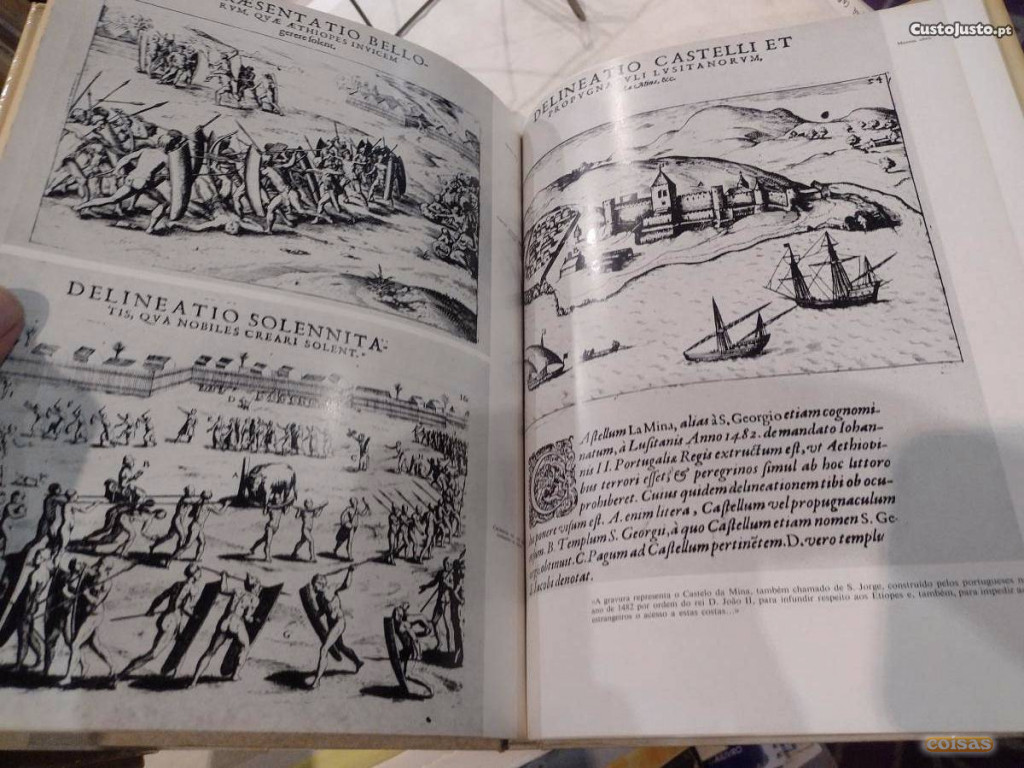 ÆSENTATIO BELLO-
RVM, QVÆ ÆTHIOPES INVICEM
gerere solent.
DELINEATIO SOLENNITA-
TIS, QVA NOBILES CREARI SOLENT.
16
G
CustoJusto.pt
DELINEATIO CASTELLI ET
PROPVGNA VLI LVSITANORVM,
la Mine, &c.
Astellum LA MINA, alias à S. GEORGIO etiam cognomi-
natum, à Lusitanis Anno 1482. de mandato Iohan-
nis II. Portugaliæ Regis extructum est, vt Aethiopi-
bus terrori esset, & peregrinos simul ab hoc littore
prohiberet. Cuius quidem delineationem tibi ob ocu-
ponere visum est. A. enim litera, Castellum vel propugnaculum
B. Templum S. Georgii, à quo Castellum etiam nomen S. Ge-
obtinuit. C. Pagum ad Castellum pertinētem. D. vero templū
denotat.
«A gravura representa o Castelo da Mina, também chamado de S. Jorge, construído pelos portugueses n
ano de 1482 por ordem do rei D. João II, para infundir respeito aos Etíopes e, também, para impedir ao
estrangeiros o acesso a estas costas...»
coisas